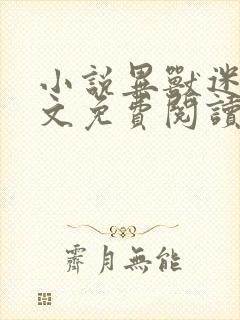 小說異獸迷
文免費閱讀
霽月無能